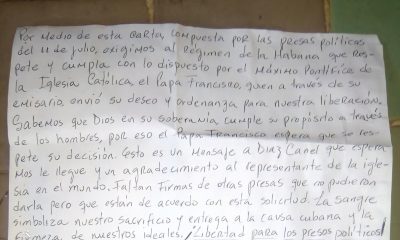 Por medio de esta carta, compuesta por las presas políticas
del 11 de julio, exigimos al Régimen de la Habana que res-
pete y cumpla con lo dispuesto por el Máximo Pontífice de
la Iglesia Católica, el Papa Francisco, quien a través de su
emisario, envió su deseo y ordenanza para nuestra liberación.
Sabemos que Dios en su soberanía cumple su propósito a través
de los hombres, por eso el Papa Francisco espera que se res-
pete su decisión. Esto es un mensaje a Diaz Canel que espera
mos le llegue y un agradecimiento al representante de la igle-
sia en el mundo. Faltan firmas de otras presas que no pudieron
darla pero que están de acuerdo con esta solicitud. La sangre
simboliza nuestro sacrificio y entrega a la causa cubana y la
firmeza de nuestros ideales. ¡Libertad para los presos políticos!